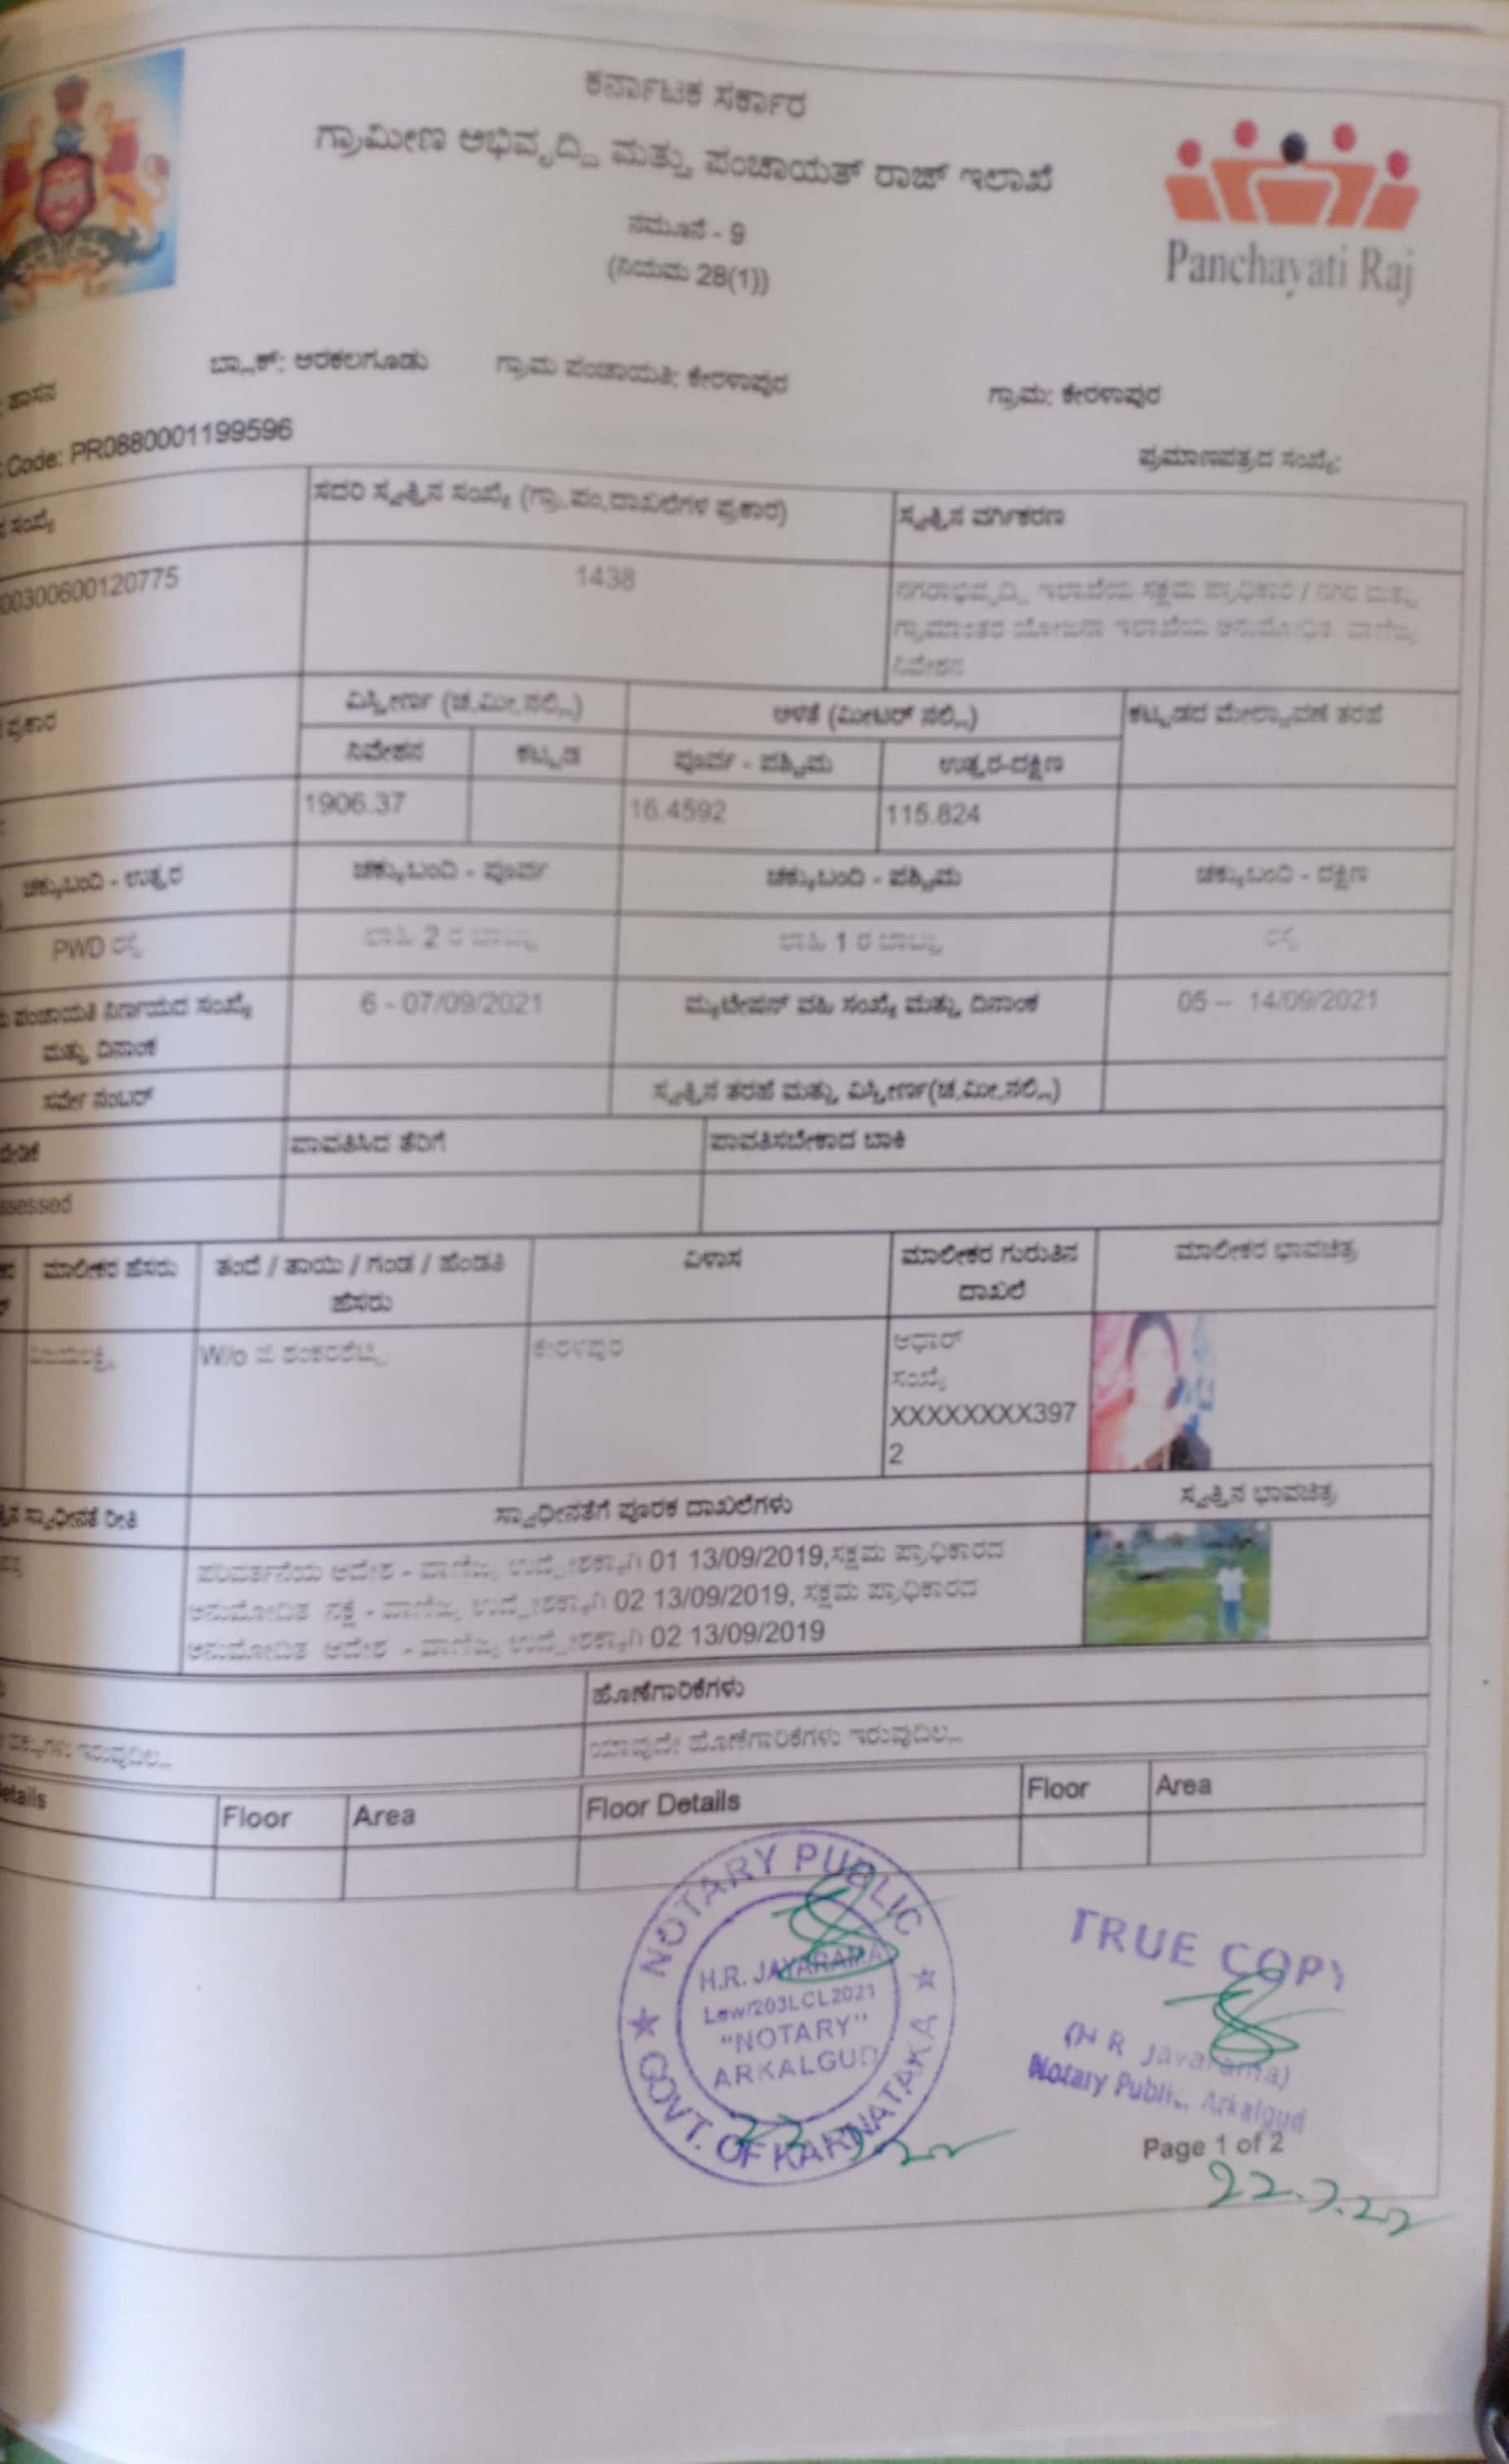 ಕರ್ನಾಟಕ ಸರ್ಕಾರ
ಗ್ರಾಮೀಣ ಅಭಿವೃದ್ದಿ ಮತ್ತು ಪಂಚಾಯತ್ ರಾಜ್ ಇಲಾಖೆ
ನಮೂನೆ - 9
(ನಿಯಮ 28(1))
Panchayati Raj
ಹಾಸನ ಬ್ಲಾಕ್: ಅರಕಲಗೂಡು ಗ್ರಾಮ ಪಂಚಾಯತಿ: ಕೇರಳಾಪುರ ಗ್ರಾಮ: ಕೇರಳಾಪುರ
Code: PR0880001199596 ಪ್ರಮಾಣಪತ್ರದ ಸಂಖ್ಯೆ:
ಸಂಖ್ಯೆ ಸದರಿ ಸ್ವತ್ತಿನ ಸಂಖ್ಯೆ (ಗ್ರಾ.ಪಂ.ದಾಖಲೆಗಳ ಪ್ರಕಾರ) ಸ್ವತ್ತಿನ ವರ್ಗೀಕರಣ
00300600120775 1438 ನಗರಾಭಿವೃದ್ದಿ ಇಲಾಖೆಯ ಸಕ್ಷಮ ಪ್ರಾಧಿಕಾರ / ನಗರ ಮತ್ತು
ಗ್ರಾಮಾಂತರ ಯೋಜನಾ ಇಲಾಖೆಯ ಅನುಮೋಧಿತ ವಾಣಿಜ್ಯ
ನಿವೇಶನ
ಪ್ರಕಾರ ವಿಸ್ತೀರ್ಣ (ಚ.ಮೀ.ನಲ್ಲಿ) ಅಳತೆ (ಮೀಟರ್ ನಲ್ಲಿ) ಕಟ್ಟಡದ ಮೇಲ್ಚಾವಣಿ ತರಹೆ
ನಿವೇಶನ ಕಟ್ಟಡ ಪೂರ್ವ - ಪಶ್ಚಿಮ ಉತ್ತರ-ದಕ್ಷಿಣ
1906.37 16.4592 115.824
ಚಕ್ಕುಬಂದಿ - ಉತ್ತರ ಚಕ್ಕುಬಂದಿ - ಪೂರ್ವ ಚಕ್ಕುಬಂದಿ - ಪಶ್ಚಿಮ ಚಕ್ಕುಬಂದಿ - ದಕ್ಷಿಣ
PWD ರಸ್ತೆ 2 ರ 1 ರ ರಸ್ತೆ
ಪಂಚಾಯತಿ ನಿರ್ಣಯದ ಸಂಖ್ಯೆ 6 - 07/09/2021 ಮ್ಯುಟೇಷನ್ ವಹಿ ಸಂಖ್ಯೆ ಮತ್ತು ದಿನಾಂಕ 05 – 14/09/2021
ಮತ್ತು ದಿನಾಂಕ
ಸರ್ವೇ ನಂಬರ್ ಸ್ವತ್ತಿನ ತರಹೆ ಮತ್ತು ವಿಸ್ತೀರ್ಣ(ಚ.ಮೀ.ನಲ್ಲಿ)
ಪಾವತಿಸಿದ ತೆರಿಗೆ ಪಾವತಿಸಬೇಕಾದ ಬಾಕಿ
ssessed
ಮಾಲೀಕರ ಹೆಸರು ತಂದೆ / ತಾಯಿ / ಗಂಡ / ಹೆಂಡತಿ ವಿಳಾಸ ಮಾಲೀಕರ ಗುರುತಿನ ಮಾಲೀಕರ ಭಾವಚಿತ್ರ
ಹೆಸರು ದಾಖಲೆ
W/o ಕೇರಳಪುರ ಆಧಾರ್
ಸಂಖ್ಯೆ
XXXXXXXX397
2
ಸ್ವಾಧೀನತೆ ರೀತಿ ಸ್ವಾಧೀನತೆಗೆ ಪೂರಕ ದಾಖಲೆಗಳು ಸ್ವತ್ತಿನ ಭಾವಚಿತ್ರ
ಪರಿವರ್ತನೆಯ ಆದೇಶ - ವಾಣಿಜ್ಯ ಉದ್ದೇಶಕ್ಕಾಗಿ 01 13/09/2019,ಸಕ್ಷಮ ಪ್ರಾಧಿಕಾರದ
ಅನುಮೋದಿತ ನಕ್ಷೆ - ವಾಣಿಜ್ಯ ಉದ್ದೇಶಕ್ಕಾಗಿ 02 13/09/2019, ಸಕ್ಷಮ ಪ್ರಾಧಿಕಾರದ
ಅನುಮೋದಿತ ಆದೇಶ - ವಾಣಿಜ್ಯ ಉದ್ದೇಶಕ್ಕಾಗಿ 02 13/09/2019
ಹೊಣೆಗಾರಿಕೆಗಳು
ಹಕ್ಕುಗಳು ಇರುವುದಿಲ್ಲ ಯಾವುದೇ ಹೊಣೆಗಾರಿಕೆಗಳು ಇರುವುದಿಲ್ಲ
etails Floor Area Floor Details Floor Area
NOTARY PUBLIC
H.R. JAYARAMA
Law/203LCL2021
"NOTARY"
ARKALGUD
GOVT. OF KARNATAKA
TRUE COPY
(H R Jayarama)
Notary Public, Arkalgud
Page 1 of 2
22.7.22